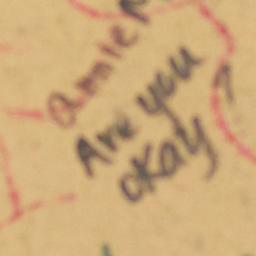 annie
Are you
okay